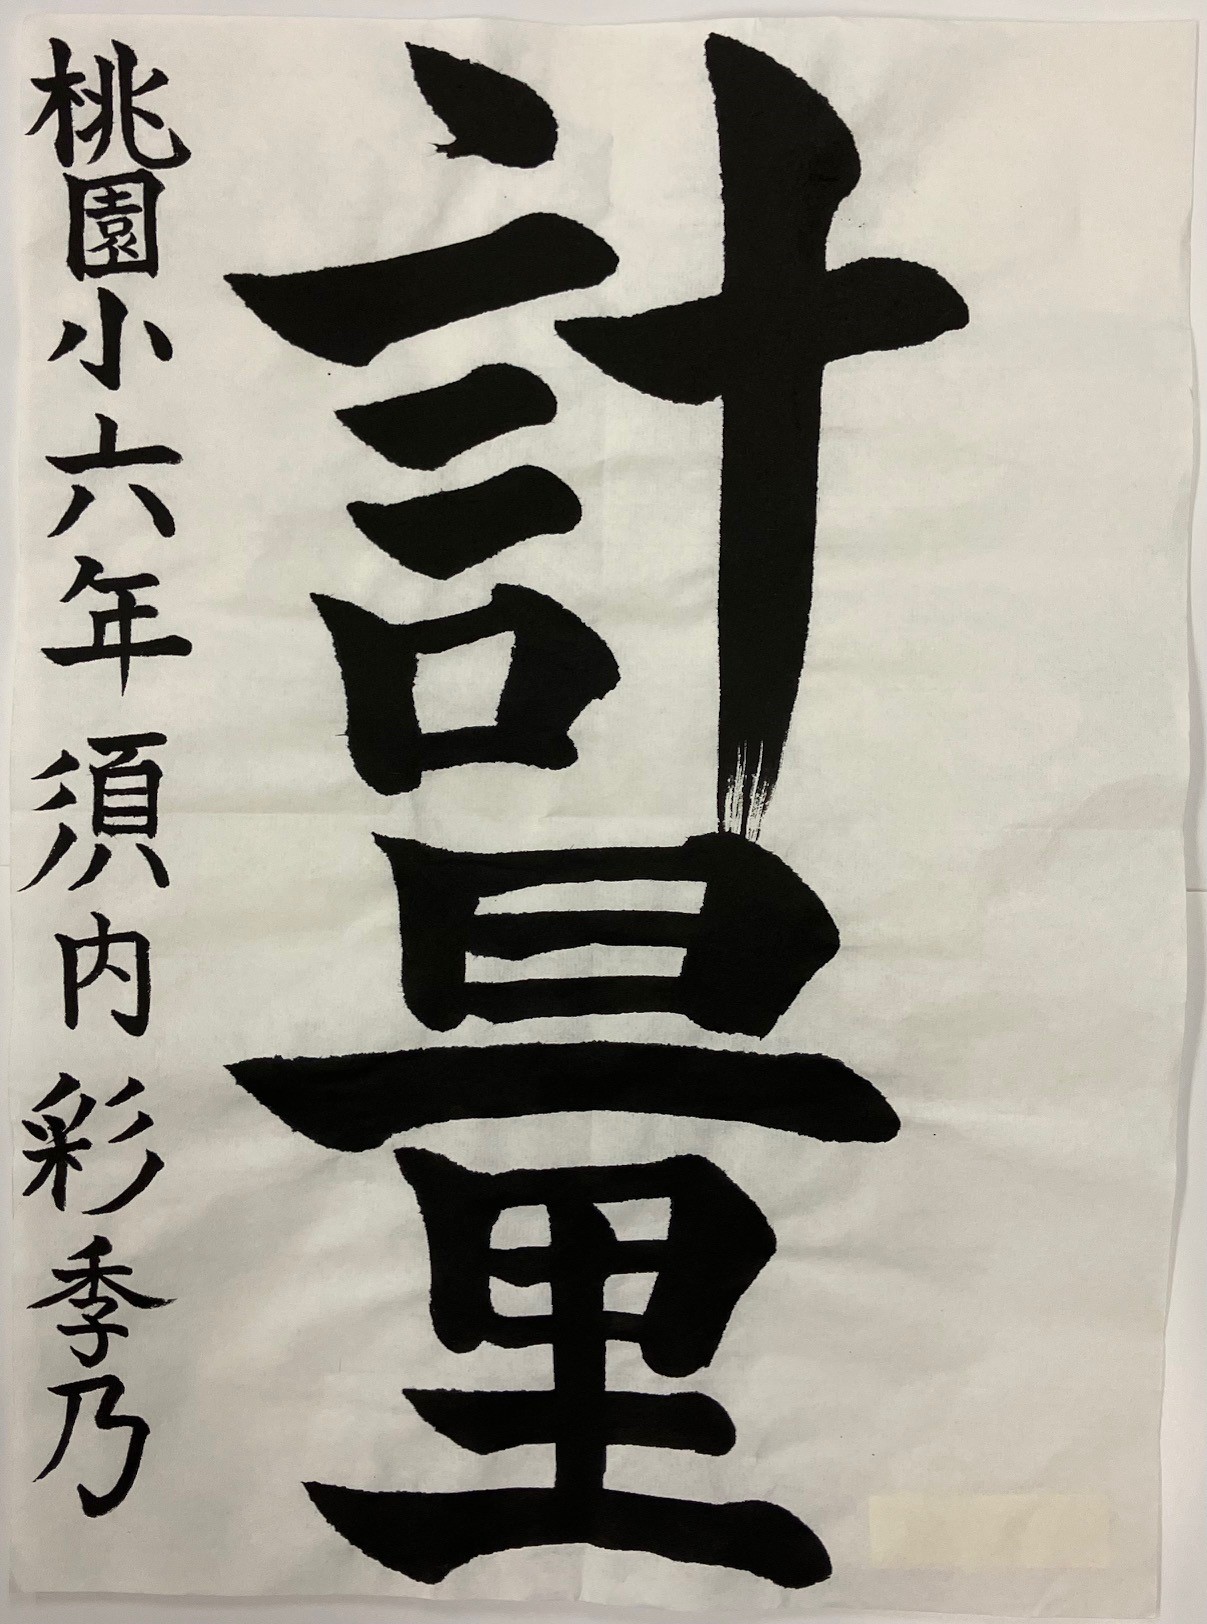 計量
桃園小六年須内彩季乃